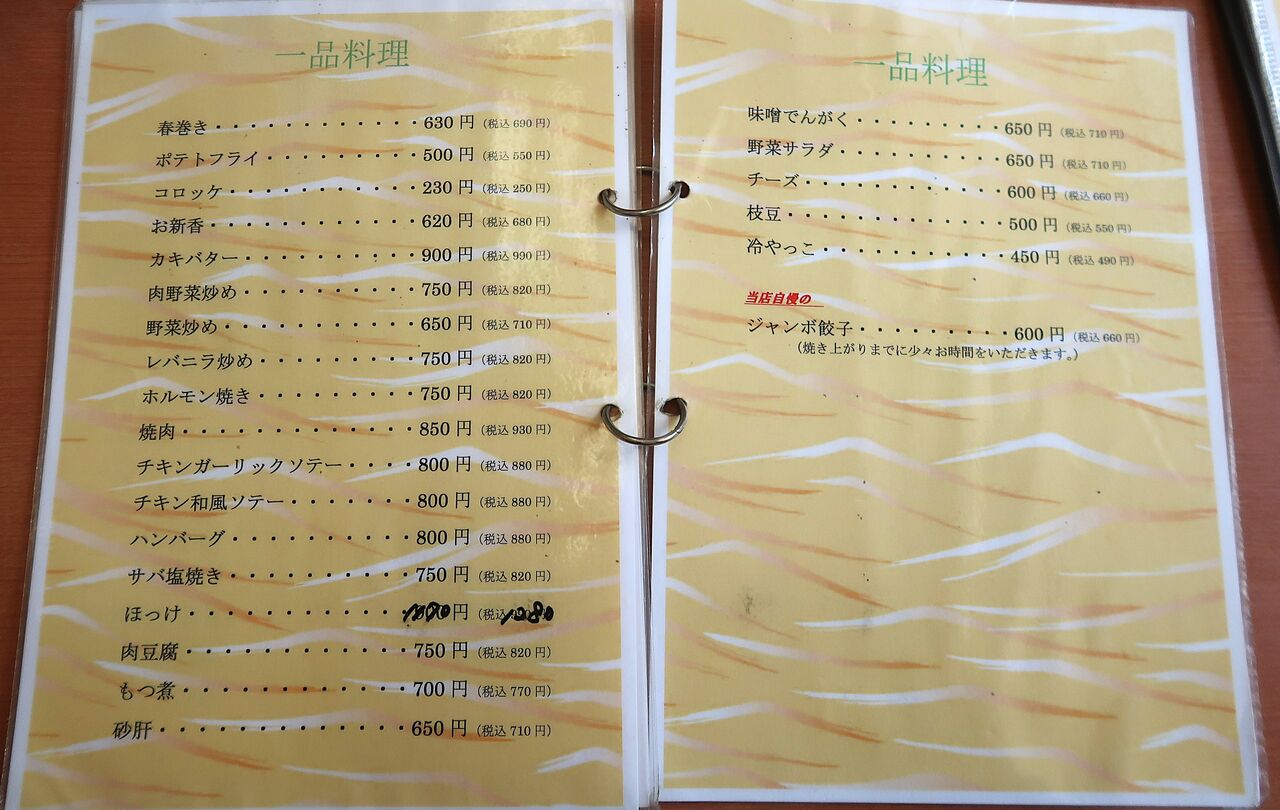 一品料理
春巻き・・・・・・・・・・・・630 円 (税込 690 円)
ポテトフライ・・・・・・・・・500 円 (税込 550 円)
コロッケ・・・・・・・・・・・230 円 (税込 250 円)
お新香・・・・・・・・・・・・620 円 (税込 680 円)
カキバター・・・・・・・・・・900 円 (税込 990 円)
肉野菜炒め・・・・・・・・・・750 円 (税込 820 円)
野菜炒め・・・・・・・・・・・650 円 (税込 710 円)
レバニラ炒め・・・・・・・・・750 円 (税込 820 円)
ホルモン焼き・・・・・・・・・750 円 (税込 820 円)
焼肉・・・・・・・・・・・・・850 円 (税込 930 円)
チキンガーリックソテー・・・・800 円 (税込 880 円)
チキン和風ソテー・・・・・・・800 円 (税込 880 円)
ハンバーグ・・・・・・・・・・800 円 (税込 880 円)
サバ塩焼き・・・・・・・・・・750 円 (税込 820 円)
ほっけ・・・・・・・・・・・・円 (税込 1080
肉豆腐・・・・・・・・・・・・750 円 (税込 820 円)
もつ煮・・・・・・・・・・・・700 円 (税込 770 円)
砂肝・・・・・・・・・・・・・650 円 (税込 710 円)
一品料理
味噌でんがく・・・・・・・・・650 円 (税込 710 円)
野菜サラダ・・・・・・・・・・650 円 (税込 710 円)
チーズ・・・・・・・・・・・・600 円 (税込 660 円)
枝豆・・・・・・・・・・・・・500 円 (税込 550 円)
冷やっこ・・・・・・・・・・・450 円 (税込 490 円)
当店自慢の
ジャンボ餃子・・・・・・・・・600 円 (税込 660 円)
(焼き上がりまでに少々お時間をいただきます。)